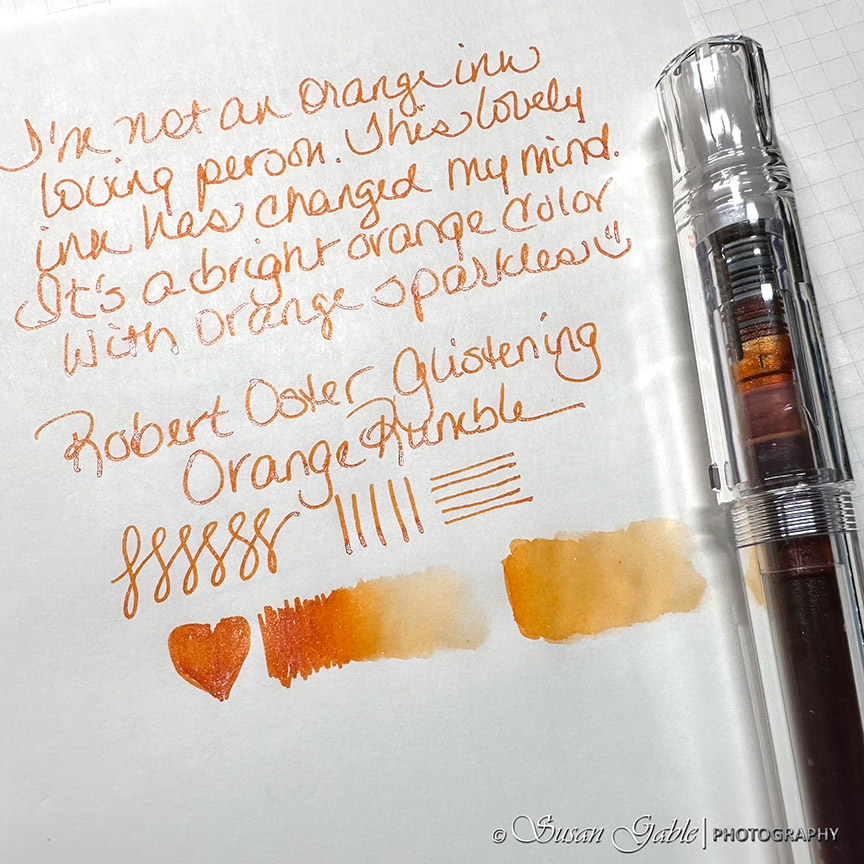 I'm not an orange ink
loving person. This lovely
ink has changed my mind.
It's a bright orange color
with orange sparkles
Robert Oster Glistening
Orange Rumble
© Susan Gable | PHOTOGRAPHY